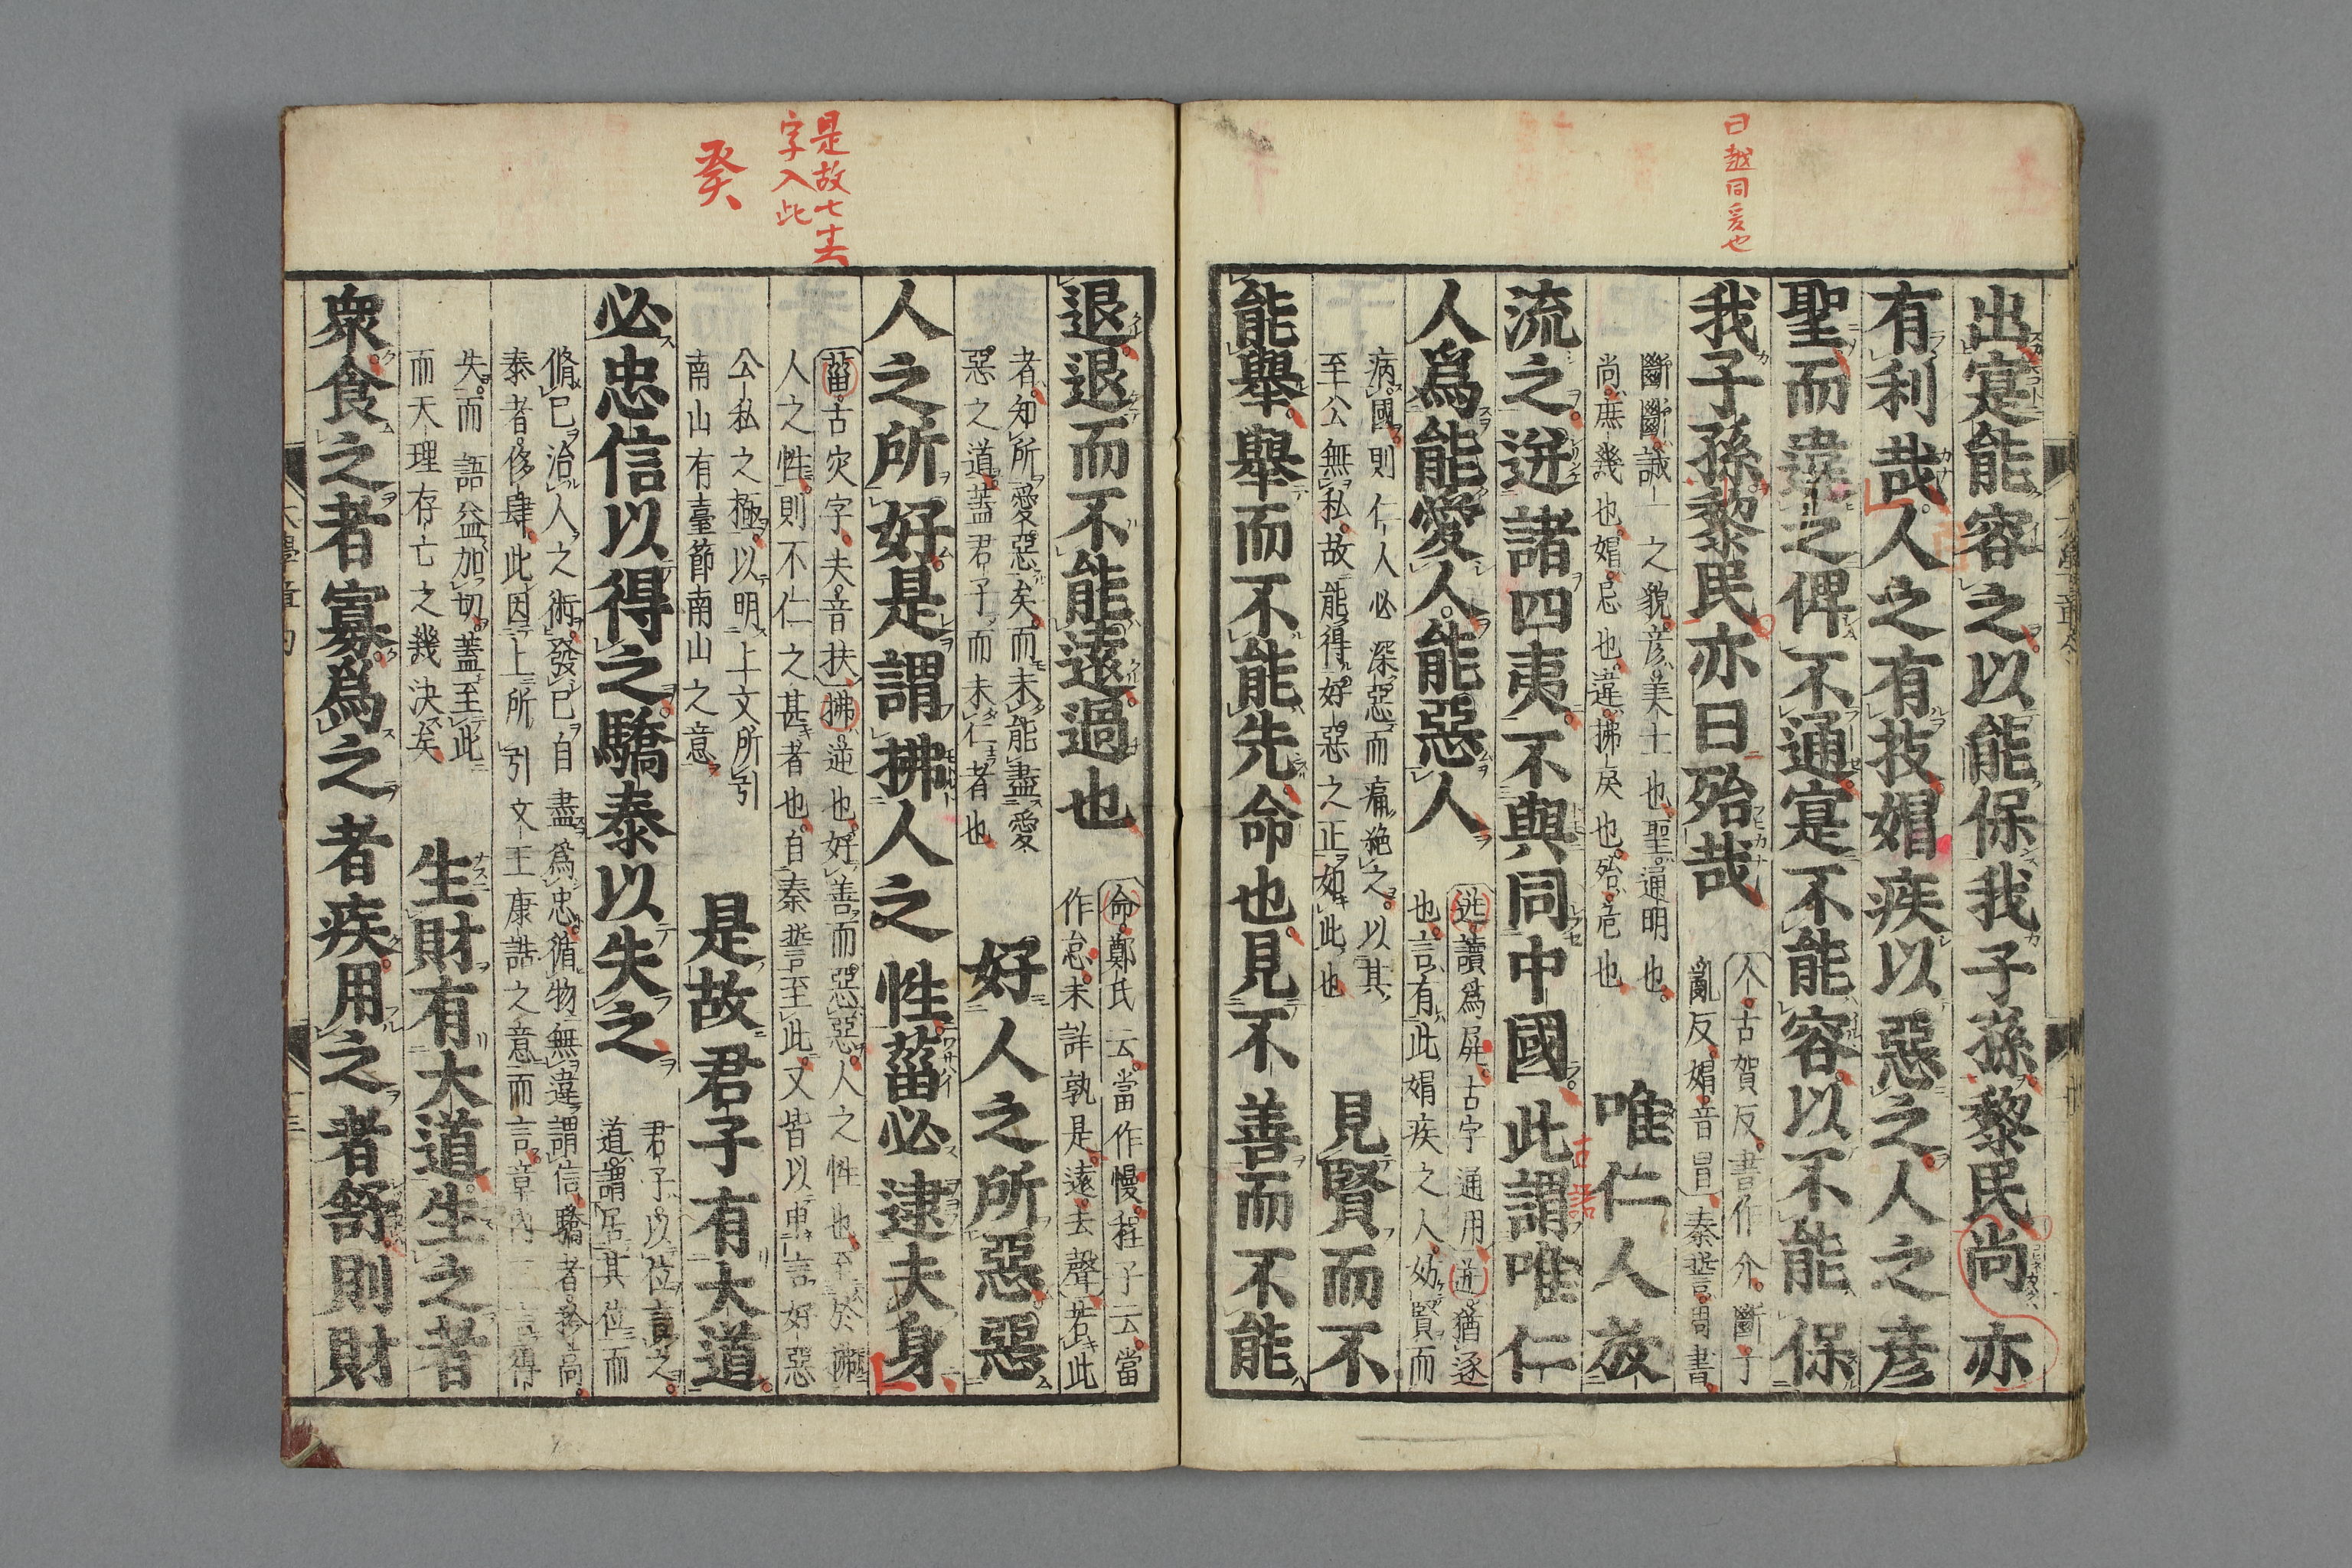 曰越同爰也
出寔能容之以能保我子孫黎民尚亦
有利哉人之有技媢疾以惡之人之彦
聖而違之俾不通寔不能容以不能保
我子孫黎民亦曰殆哉
个古賀反書作介斷丁
亂反媢音冒秦誓周書
斷斷誠一之貌彦美士也聖通明也
尚庶幾也媢忌也違拂戾也殆危也
唯仁人放
流之迸諸四夷不與同中國此謂唯仁
古語
人爲能愛人能惡人
迸讀爲屏古字通用迸猶逐
也言有此媢疾之人妨賢而
病國則仁人必深惡而痛絶之以其
至公無私故能得好惡之正如此也
見賢而不
能舉舉而不能先命也見不善而不能
是故七去
字入此
癸
退退而不能遠過也
命鄭氏云當作慢程子云當
作怠未詳孰是遠去聲若此
者知所愛惡矣而未能盡愛
惡之道蓋君子而未仁者也
好人之所惡惡
人之所好是謂拂人之性菑必逮夫身
菑古灾字夫音扶拂逆也好善而惡惡人之性也至於拂
人之性則不仁之甚者也自秦誓至此又皆以申言好惡
公私之極以明上文所引
南山有臺節南山之意
是故君子有大道
必忠信以得之驕泰以失之
君子以位言之
道謂居其位而
脩已治人之術發已自盡爲忠循物無違謂信驕者矜高
泰者侈肆此因上所引文王康誥之意而言章内三言得
失而語益加切蓋至此
而天理存亡之幾決矣
生財有大道生之者
衆食之者寡爲之者疾用之者舒則財